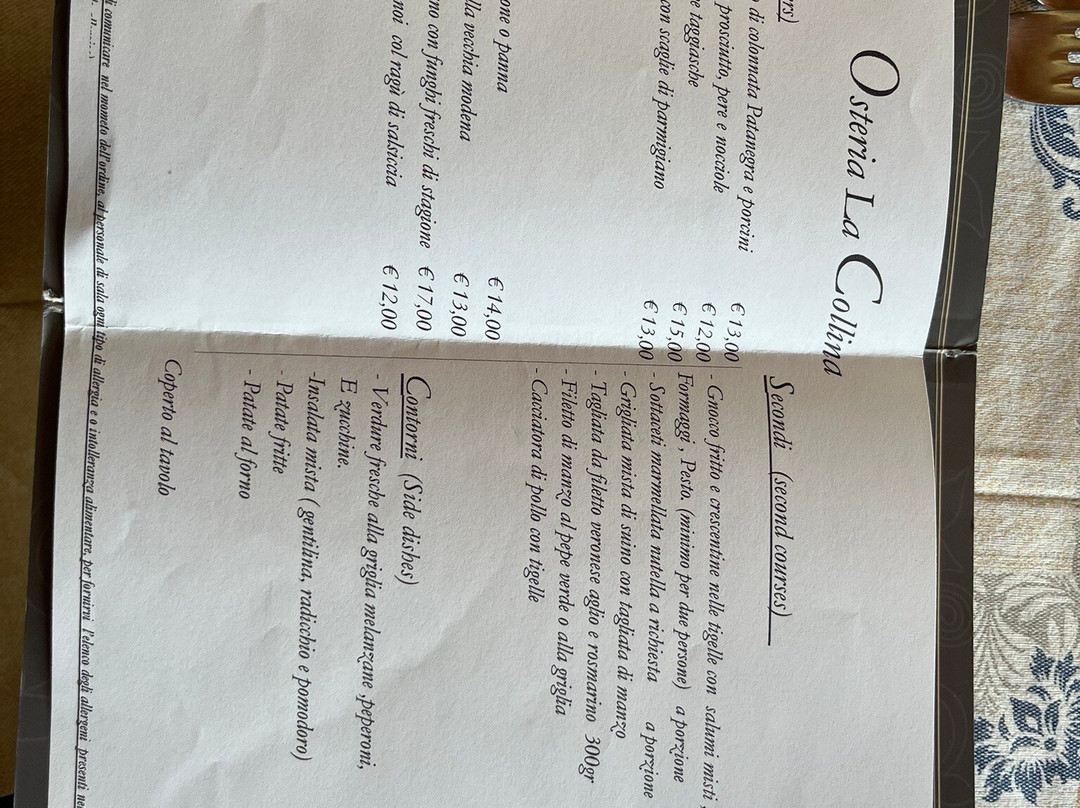 Osteria La Collina
di colonnata Patanegra e porcini € 13,00
prosciutto, pere e nocciole € 12,00
e taggiasche € 15,00
con scaglie di parmigiano € 13,00
one o panna € 14,00
lla vecchia modena € 13,00
no con funghi freschi di stagione € 17,00
noi col ragù di salsiccia € 12,00
Secondi (second courses)
- Gnoco fritto e crescentine nelle tigelle con salumi misti ,
Formaggi , Pesto, (minimo per due persone) a porzione
- Sottaceti marmellata nutella a richiesta a porzione
- Grigliata mista di suino con tagliata di manzo
- Tagliata da filetto veronese aglio e rosmarino 300gr
- Filetto di manzo al pepe verde o alla griglia
- Cacciatora di pollo con tigelle
Contorni (Side dishes)
- Verdure fresche alla griglia melanzane ,peperoni,
E zucchine.
-Insalata mista ( gentilina, radicchio e pomodoro)
- Patate fritte
- Patate al forno
Coperto al tavolo
di comunicare nel mometo dell'ordine, al personale di sala ogni tipo di allergia e o intolleranza alimentare, per fornirvi l'elenco degli allergeni presenti nei